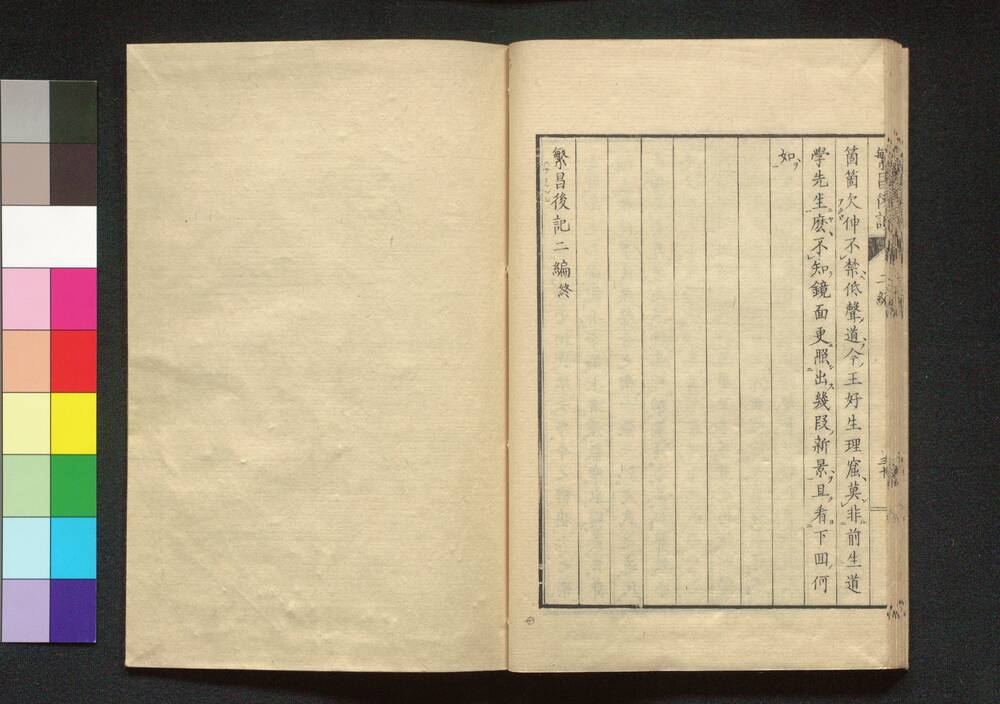 繁昌後記
二編
三十
箇箇欠伸不禁低聲道今王好生理窟莫非前生道
學先生麽不知鏡面更照出幾段新景且看下回何
如
繁昌後記二編終